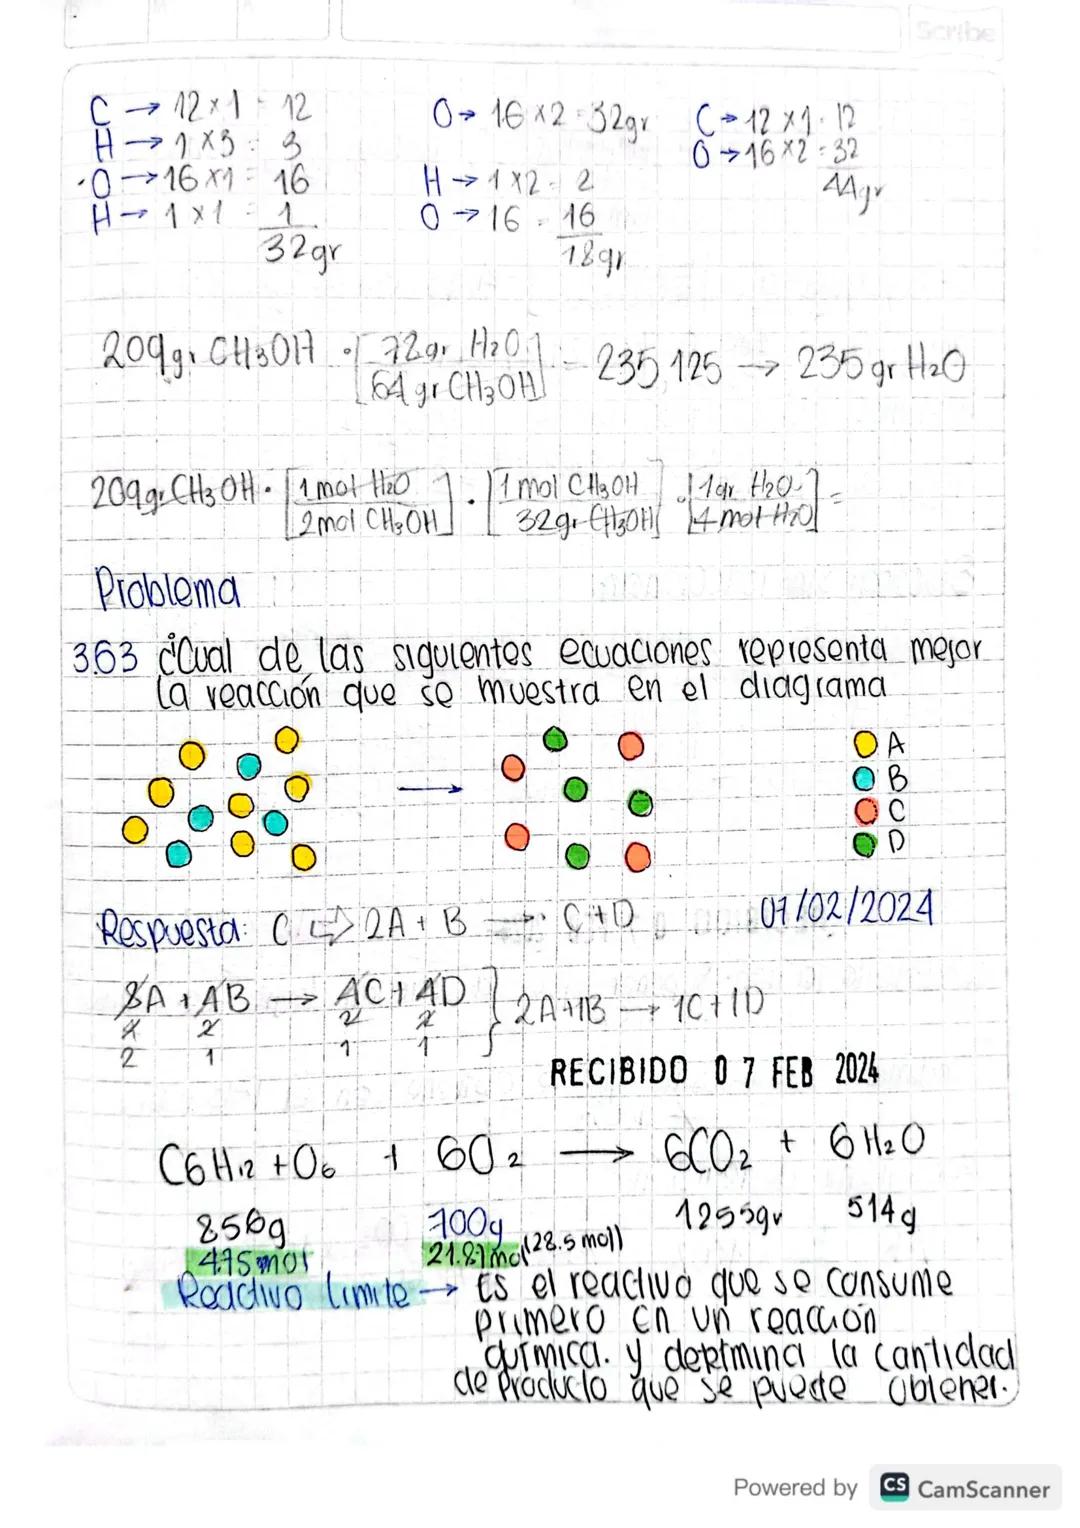 Scribe
C → 12 x 1 = 12
H → 1 x 3 = 3
O → 16 x 1 = 16
H → 1 x 1 = 1
32gr
O → 16 x 2 = 32gr
H → 1 x 2 = 2
O → 16 = 16
18gr
C → 12 x 1 = 12
O → 16 x 2 = 32
44gr
209gr CH3OH · [72gr H2O / 64gr CH3OH] = 235 125 → 235gr H2O
209gr CH3OH · [1mol H2O / 2mol CH3OH] · [1mol CH3OH / 32gr CH3OH] · [1gr H2O / 4mol H2O] =
Problema
3.63 ¿Cual de las siguientes ecuaciones representa mejor
la reacción que se muestra en el diagrama
A
B
C
D
Respuesta: C ⇨ 2A + B → C+D
07/02/2024
8A + 4B → 4C + 4D } 2A+1B → 1C+1D
4 2 2 2
2 1 1 1
RECIBIDO 07 FEB 2024
C6H12+O6 + 6O2 → 6CO2 + 6H2O
856g 700g 1255gr 514g
4.75mol 21.87mol (28.5 mol)
Reactivo limite → Es el reactivo que se consume
primero en un reacción
química. y deptmina la cantidad
de producto que se puede obtener.
Powered by CS CamScanner